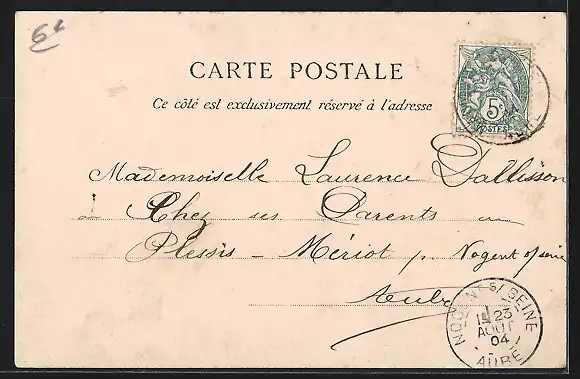 6
CARTE POSTALE
Ce côté est exclusivement réservé à l'adresse
5c
POSTES
Mademoiselle Laurence Dallisson
à Chez ses Parents
Plessis - Mériot p. Nogent s/ seine
Aube
NOGENT S/ SEINE
1E 23
AOUT
04
AUBE